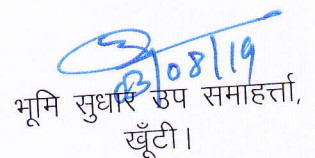 03/08/19
भूमि सुधार उप समाहर्त्ता,
खूँटी।